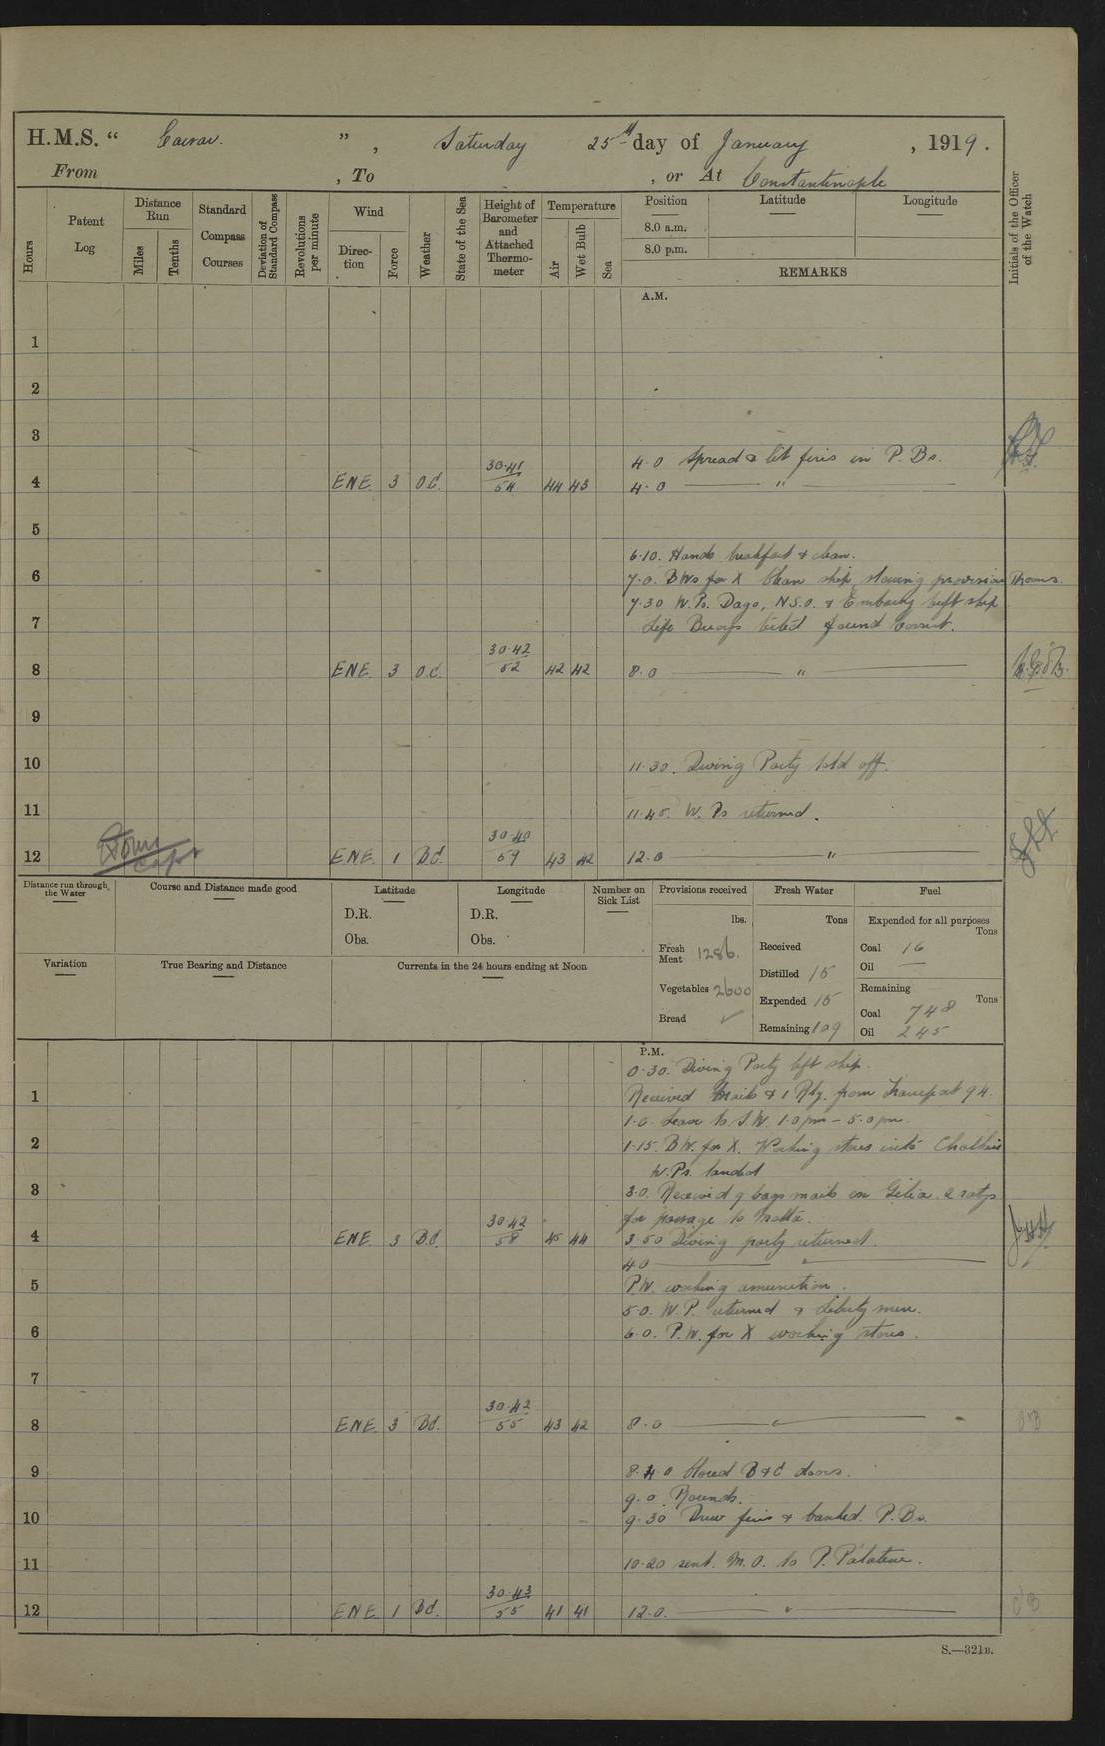 H.M.S. “ ” , Saturday 25th day of January , 1919 .
From , To , or At Constantinople
Hours
Patent Log
Distance Run
Miles
Tenths
Standard Compass Courses
Deviation of Standard Compass
Revolutions per minute
Wind
Direction
Force
Weather
State of the Sea
Height of Barometer and Attached Thermometer
Temperature
Air
Wet Bulb
Sea
Position
Latitude
Longitude
8.0 a.m.
8.0 p.m.
REMARKS
Initials of the Officer of the Watch
A.M.
1
2
3
4.0 Spread & lit fires in P. Bs.
4 ENE 3 O.C. 30.41 54 44 43 4.0 "
5
6.10. Hands breakfast & clean.
6
7.0. BWs for X Clean ship, stowing provision rooms.
7.30 W.Ps. Dago, N.S.O. & Embassy left ship
7
Life Buoys tested found correct.
8 ENE. 3 O.C. 30.42 52 42 42 8.0 "
9
10
11.30. Diving Party told off.
11
11.45. W. Ps returned.
12 ENE. 1 BC. 30.40 59 43 42 12.0 "
Distance run through the Water
Course and Distance made good
Latitude
D.R.
Obs.
Longitude
D.R.
Obs.
Number on Sick List
Provisions received
lbs.
Fresh Meat 1286.
Vegetables 2600
Bread ✓
Fresh Water
Tons
Received
Distilled 15
Expended 15
Remaining 109
Fuel
Expended for all purposes
Tons
Coal 16
Oil —
Remaining
Tons
Coal 748
Oil 245
Variation
True Bearing and Distance
Currents in the 24 hours ending at Noon
P.M.
0.30. Diving Party left ship.
1
Received Mails & 1 Rtg. from Transport 94.
1.0 Leave to S.W. 1.0 pm – 5.0 pm.
2
1.15. B.W. for X. Working stores into
W.Ps. landed
3
3.0. Received 9 bags mails on 2 ratgs
for passage to Malta.
4 ENE. 3 B.C. 30.42 58 45 44 3.50 Diving party returned.
4.0 "
5
P.W. working amunition.
5.0. W.P. returned & liberty men.
6
6.0. P.W. for X working stores.
7
8 ENE. 3 BC. 30.42 55 43 42 8.0 "
9
8.40 Closed B & C doors.
9.0. Rounds.
10
9.30 Drew fires & banked. P. Bs.
11
10.20 sent. M.O. to P.
12 ENE. 1 BC. 30.43 55 41 41 12.0. "
S.—321B.